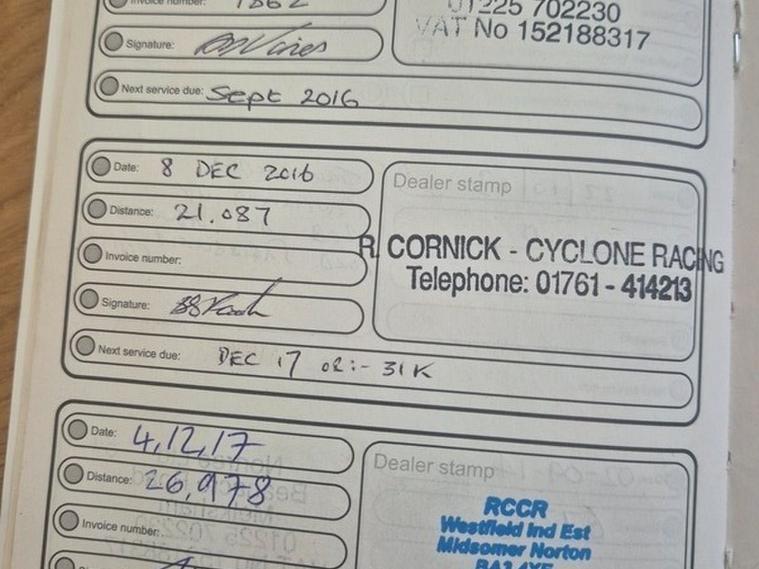 Invoice number: 1862
01225 702230
VAT No 152188317
Signature:
Next service due: Sept 2016
Date: 8 DEC 2016
Dealer stamp
Distance: 21.087
R. CORNICK - CYCLONE RACING
Telephone: 01761 - 414213
Invoice number:
Signature:
Next service due: DEC 17 OR:- 31K
Date: 4,12,17
Dealer stamp
Distance: 26,978
RCCR
Westfield Ind Est
Midsomer Norton
BA3 4XE
Invoice number: